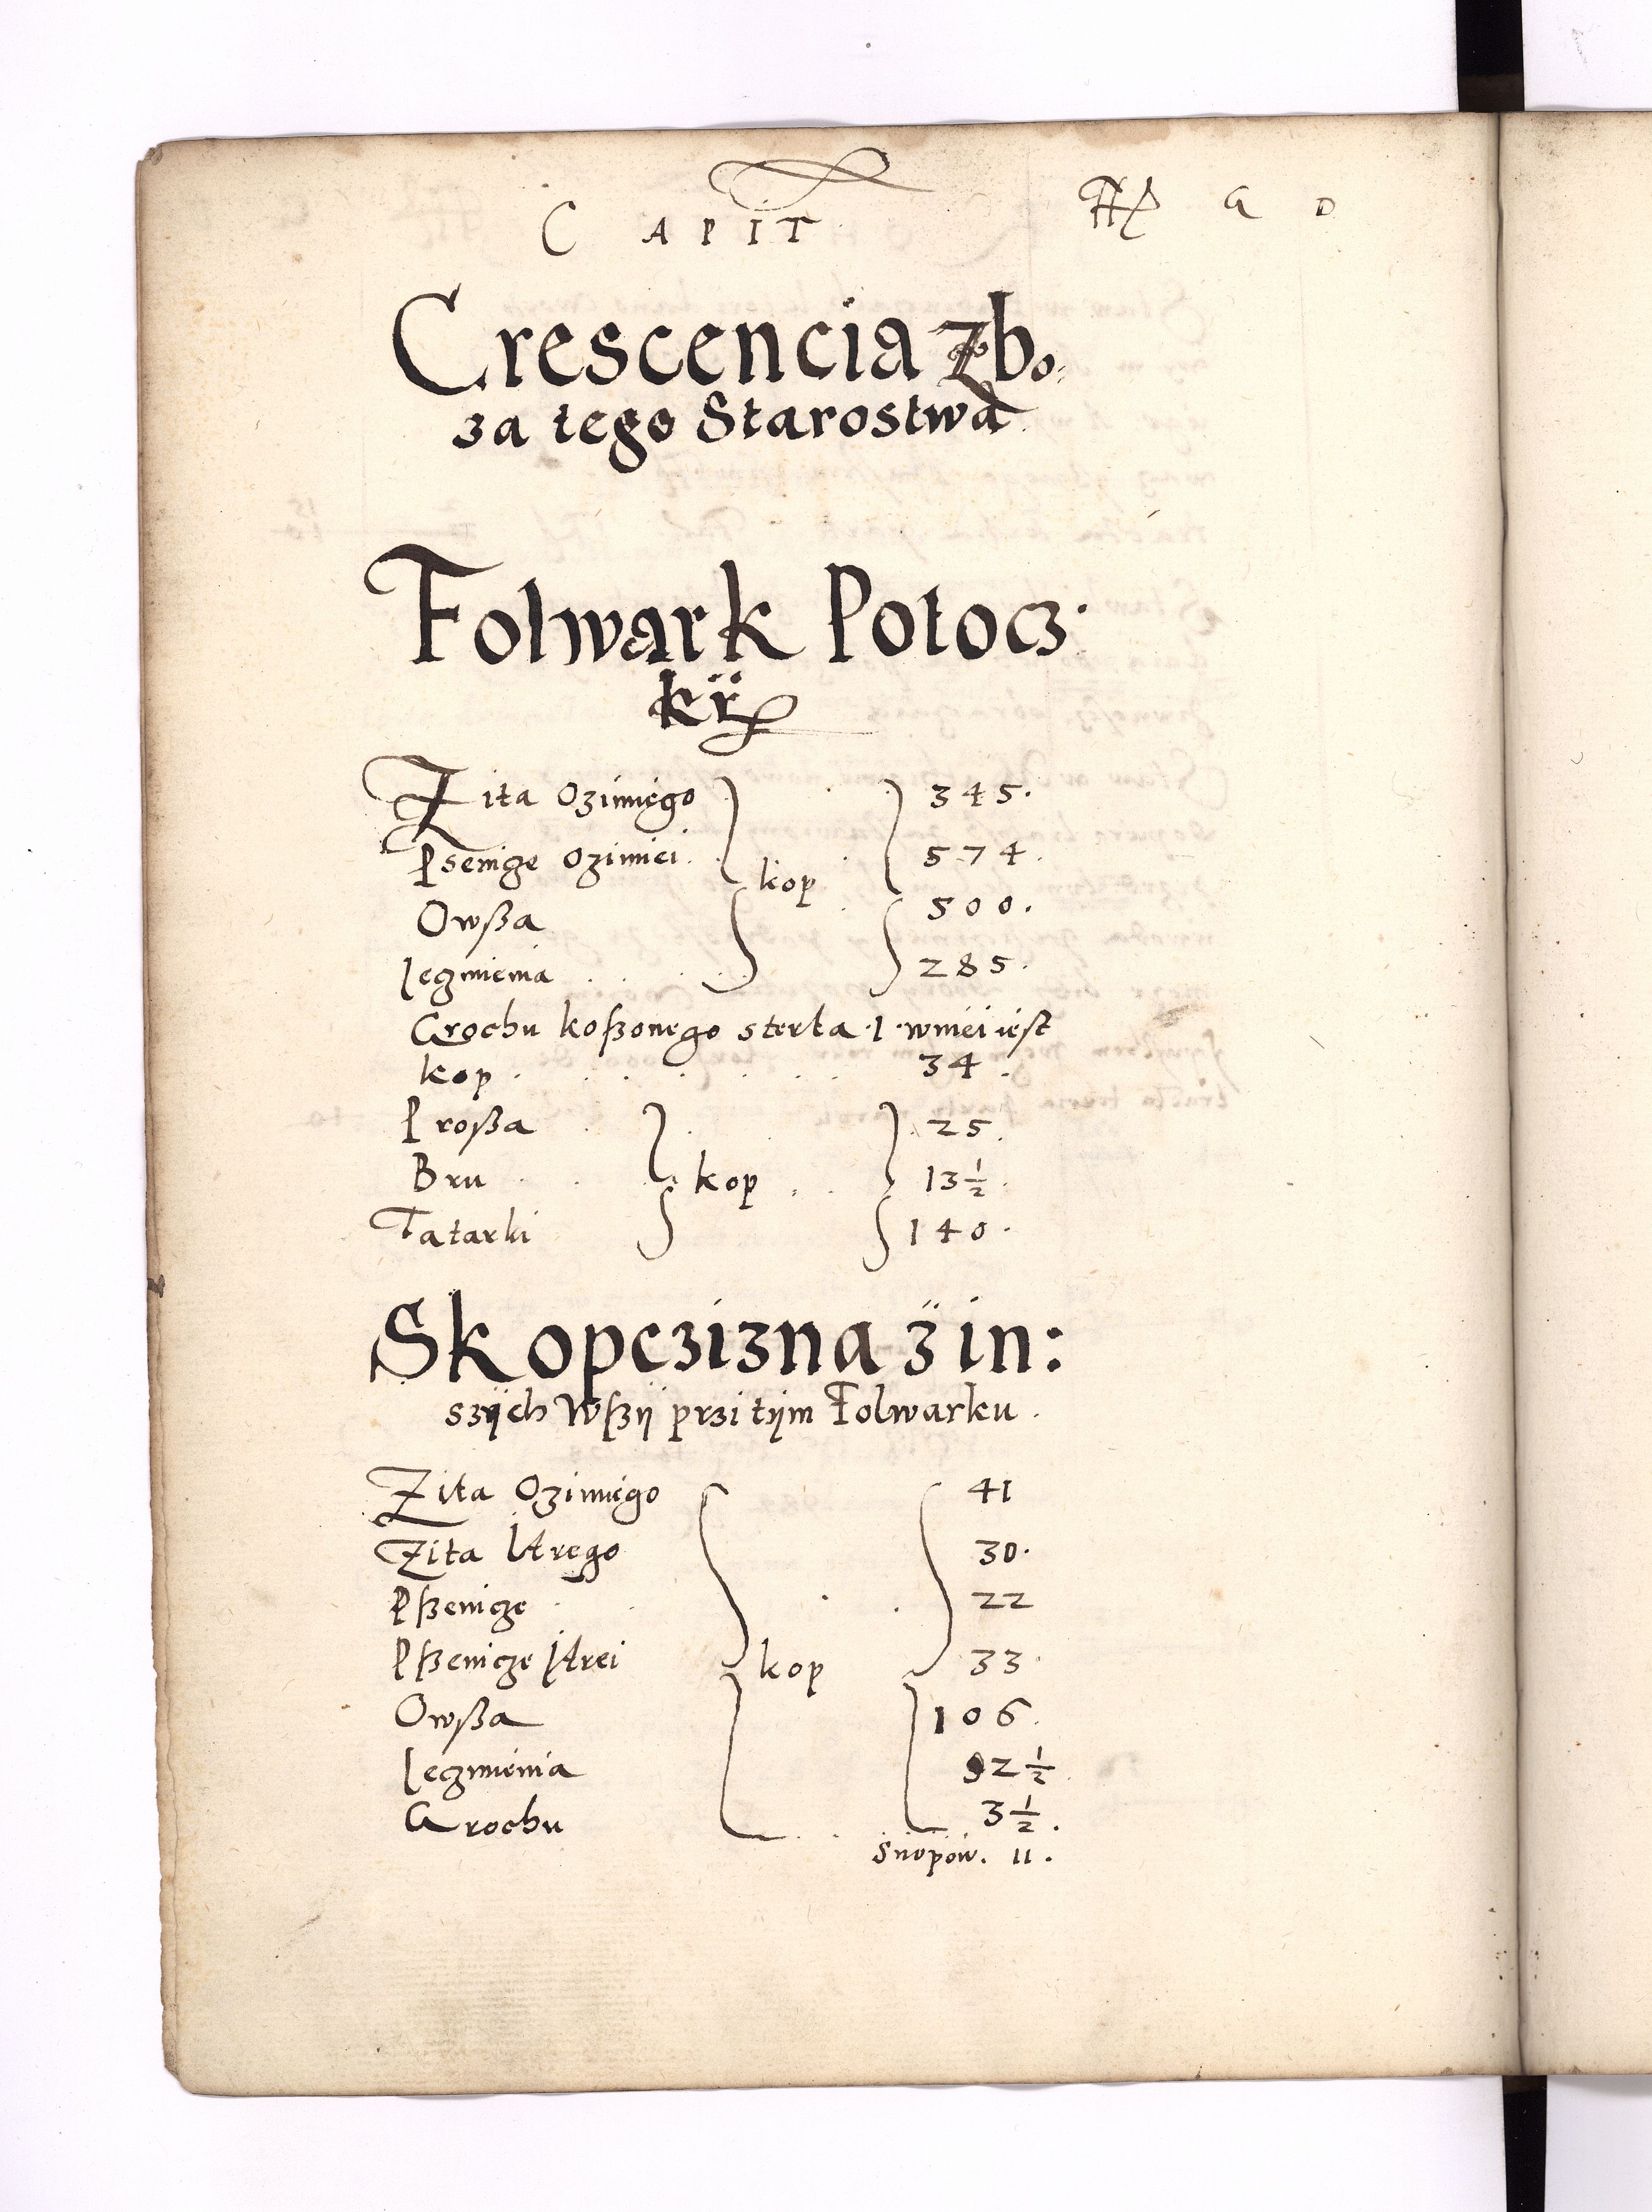 C A P I T
Fl G D
Crescencia zbo:
za tego Starostwa
Folwark Potocz
kÿ
Zita Ozimiego 345.
Psenicze Ozimiei. kop 574.
Owßa 500.
Jeczmienia 285.
Grochu koßonego sterta .1. wniei iest
kop 34.
Proßa 25.
Bru kop 13 1/2.
Tatarki 140.
Skopczizna z in:
szÿch Wßÿ przi tÿm Folwarku.
Zita Ozimiego 41
Zita Jarego 30.
Pßenicze 22
Pßenicze Jarei kop 33.
Owßa 106.
Jeczmienia 92 1/2
Grochu 3 1/2.
Snopow. 11.